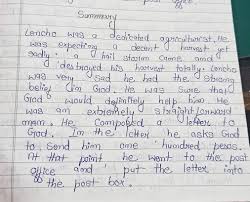 Summary
Lencho was a dedicated agriculturist. He
was expecting a decent harvest yet
sadly a hail storm came and
destroyed his harvest totally. Lencho
was very sad he had the strong
belief in God. He was sure that
God would definitely help him. He
was an extremely straightforward
man. He composed a letter to
God. In the letter he asks God
to send him one hundred pesos.
At that point he went to the post
office and put the letter into
the post box.